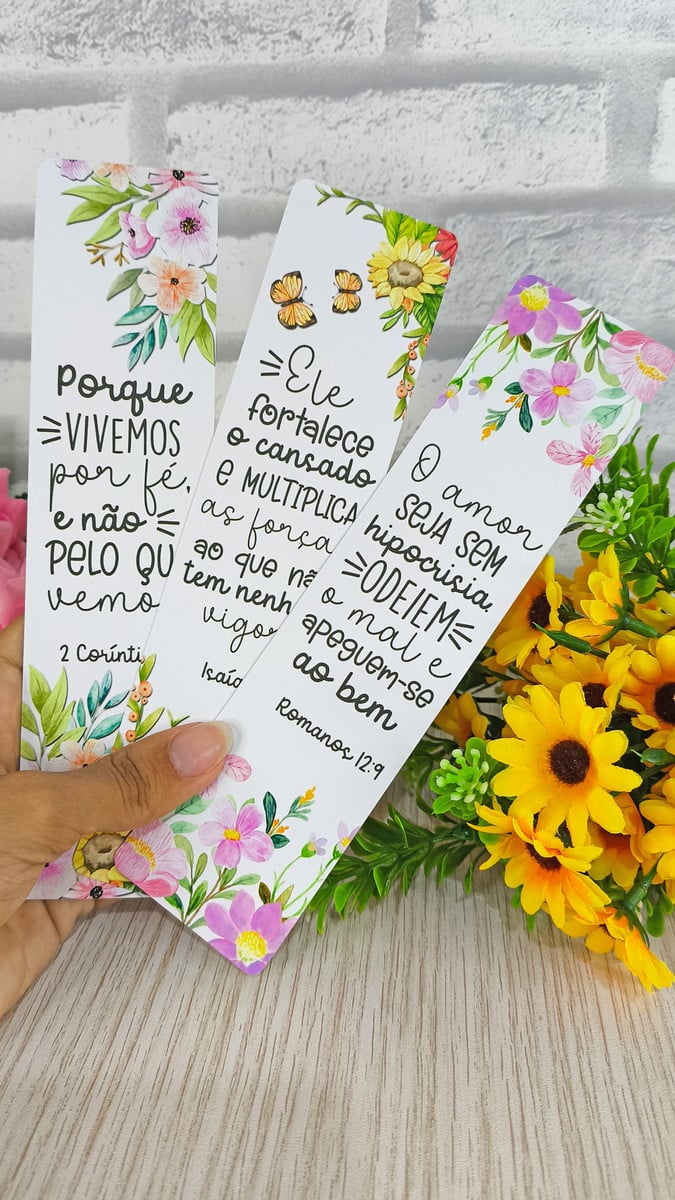 Porque
VIVEMOS
por fé,
e não
PELO QU
vemo
2 Corínti
Ele
fortalece
o cansado
E MULTIPLICA
as força
ao que nã
tem nenh
vigo
Isaía
O amor
SEJA SEM
hipocrisia,
ODEIEM
o mal e
apeguem-se
ao bem
Romanos 12:9